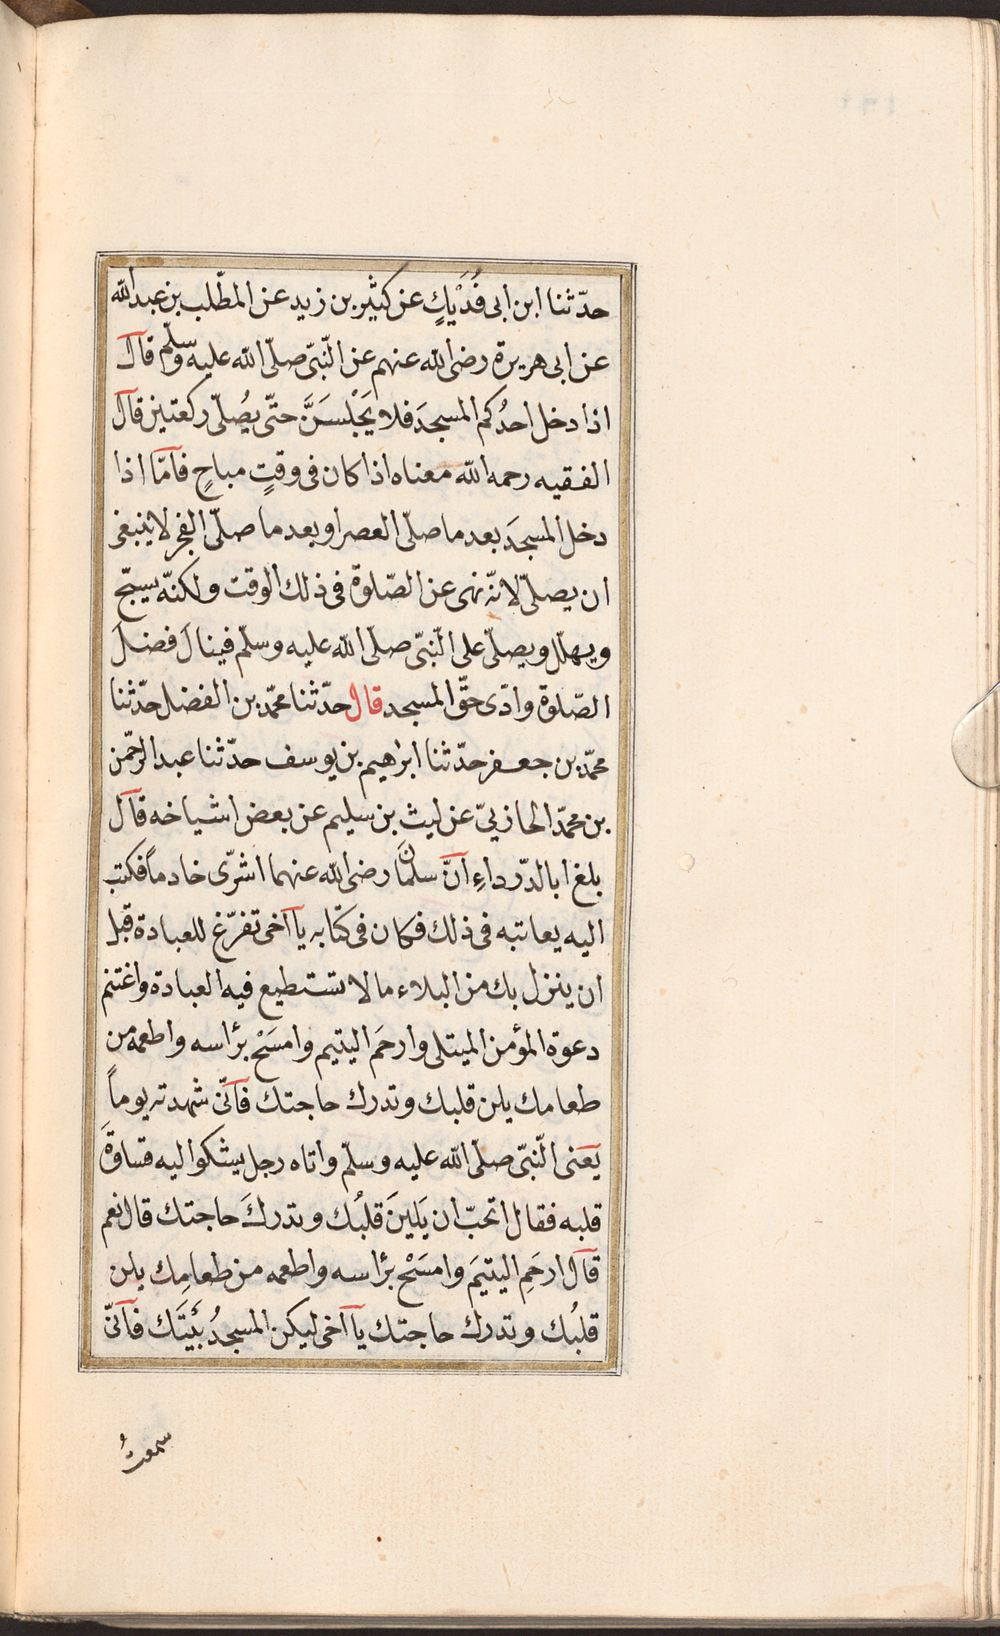 حدّثنا ابن ابى فُدَيْكٍ عن كثير بن زيد عن المطّلب بن عبدالله
عن ابى هريرة رضى الله عنهم عن النّبىّ صلّى الله عليه وسلّم قال
اذا دخل احدُكم المسجدَ فلا يَجْلسَنَّ حتّى يُصلّى ركعتين قال
الفقيه رحمه الله معناه اذا كان فى وقتٍ مباحٍ فامّا اذا
دخل المسجدَ بعد ما صلّى العصر او بعد ما صلّى الفجر لا ينبغى
ان يصلّى لانّه نهى عن الصّلوة فى ذلك الوقت ولكنّه يسبّح
ويهلّل ويصلّى على النّبىّ صلّى الله عليه وسلّم فينال فضلَ
الصّلوة وادّى حقّ المسجد قال حدّثنا محمّد بن الفضل حدّثنا
محمّد بن جعفر حدّثنا ابرهيم بن يوسف حدّثنا عبد الرحمن
بن محمّد الحازبىّ عن ليث بن سليم عن بعض اشياخه قال
بلغ ابا الدّرداءِ انّ سلمان رضى الله عنهما اشترى خادماً فكتب
اليه يعاتبه فى ذلك فكان فى كتابه يا اخى تفرّغ للعبادة قبل
ان ينزل بك من البلاء ما لا تستطيع فيه العبادة واغتنم
دعوة المؤمن المبتلى وارحَم اليتيم وامسَحْ برأسه واطعمه من
طعامك يلن قلبك وتدرك حاجتك فانّى شهدته يوماً
يعنى النّبىّ صلّى الله عليه وسلّم واتاه رجل يشكوا اليه قساوةَ
قلبه فقال اتحبّ ان يَلينَ قلبُك وتدركَ حاجتك قال نعم
قال ارحَمِ اليتيمَ وامسَحْ برأسه واطعمه من طعامِك يلن
قلبُك وتدرك حاجتك يا اخى ليكن المسجدُ بَيْتَك فانّى
سمعتُ